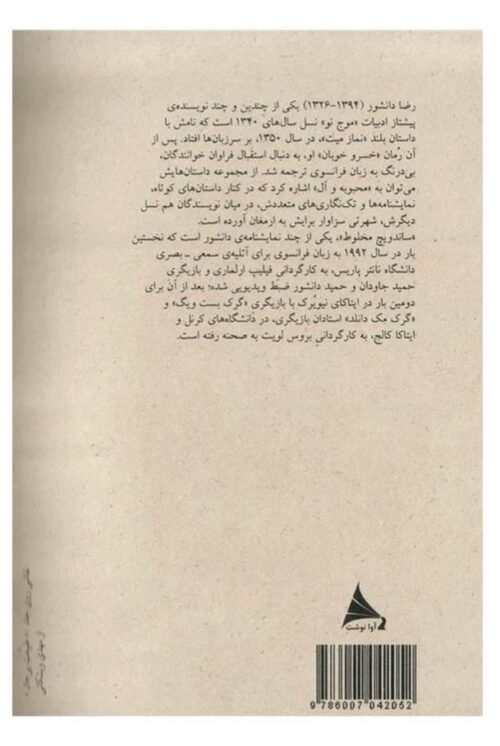 رضا دانشور (۱۳۹۴-۱۳۲۶) یکی از چندین و چند نویسنده‌ی
پیشتاز ادبیات «موج نو» نسل سال‌های ۱۳۴۰ است که نامش با
داستان بلند «نماز میت»، در سال ۱۳۵۰، بر سرزبان‌ها افتاد. پس از
آن رُمان «خسرو خوبان» او، به دنبال استقبال فراوان خوانندگان،
بی‌درنگ به زبان فرانسوی ترجمه شد. از مجموعه داستان‌هایش
می‌توان به «محبوبه و آل» اشاره کرد که در کنار داستان‌های کوتاه،
نمایشنامه‌ها و تک‌نگاری‌های متعددش، در میان نویسندگان هم نسل
دیگرش، شهرتی سزاوار برایش به ارمغان آورده است.
«ساندویچ مخلوط»، یکی از چند نمایشنامه‌ی دانشور است که نخستین
بار در سال ۱۹۹۲ به زبان فرانسوی برای آتلیه‌ی سمعی ـ بصری
دانشگاه نانتر پاریس، به کارگردانی فیلیپ ارلماری و بازیگری
حمید جاودان و حمید دانشور ضبط ویدیویی شد؛ بعد از آن برای
دومین بار در ایتاکای نیویُرک با بازیگری «گرک بست ویگ» و
«گرک مک دانلد» استادان بازیگری، در دانشگاه‌های کرنل و
ایتاکا کالج، به کارگردانی بروس لویت به صحنه رفته است.
آوا نوشت
9 786007 042052